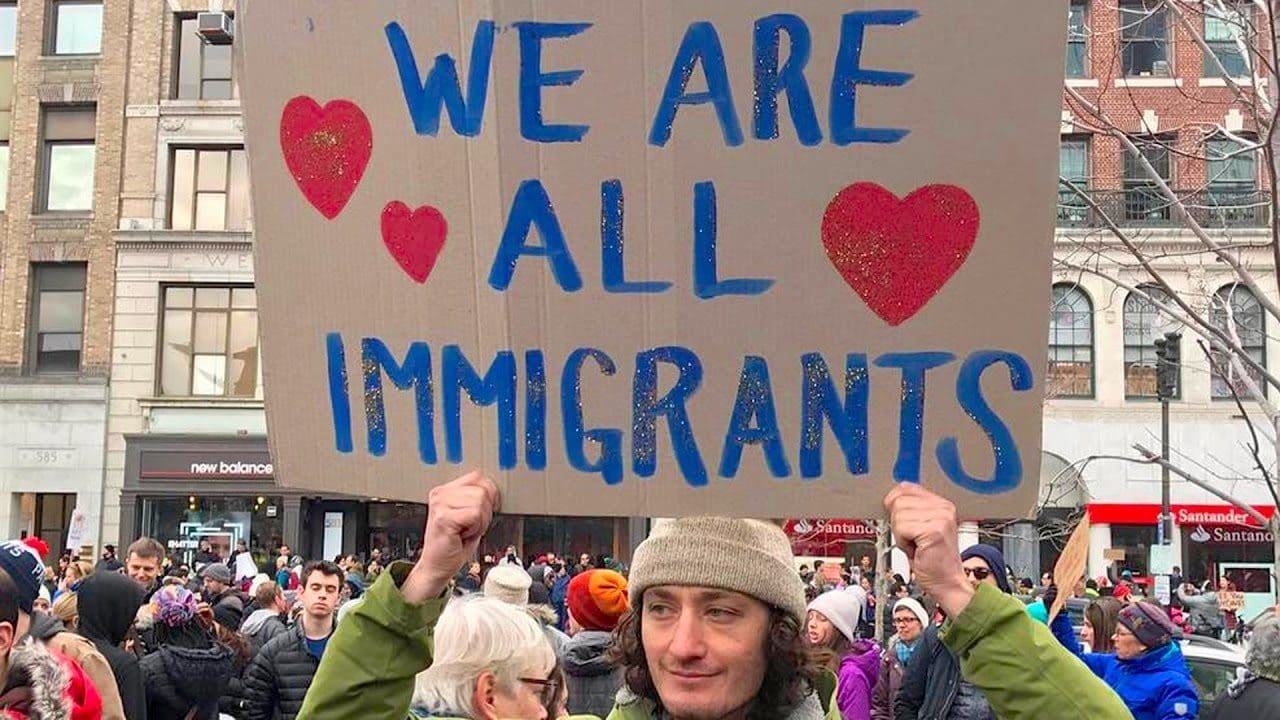 WE ARE
ALL
IMMIGRANTS
585
new balance
Santander
Santander